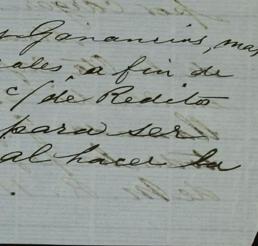 Ganancias, mas
ales, a fin de
c/ de Redito
para ser
al hacer la